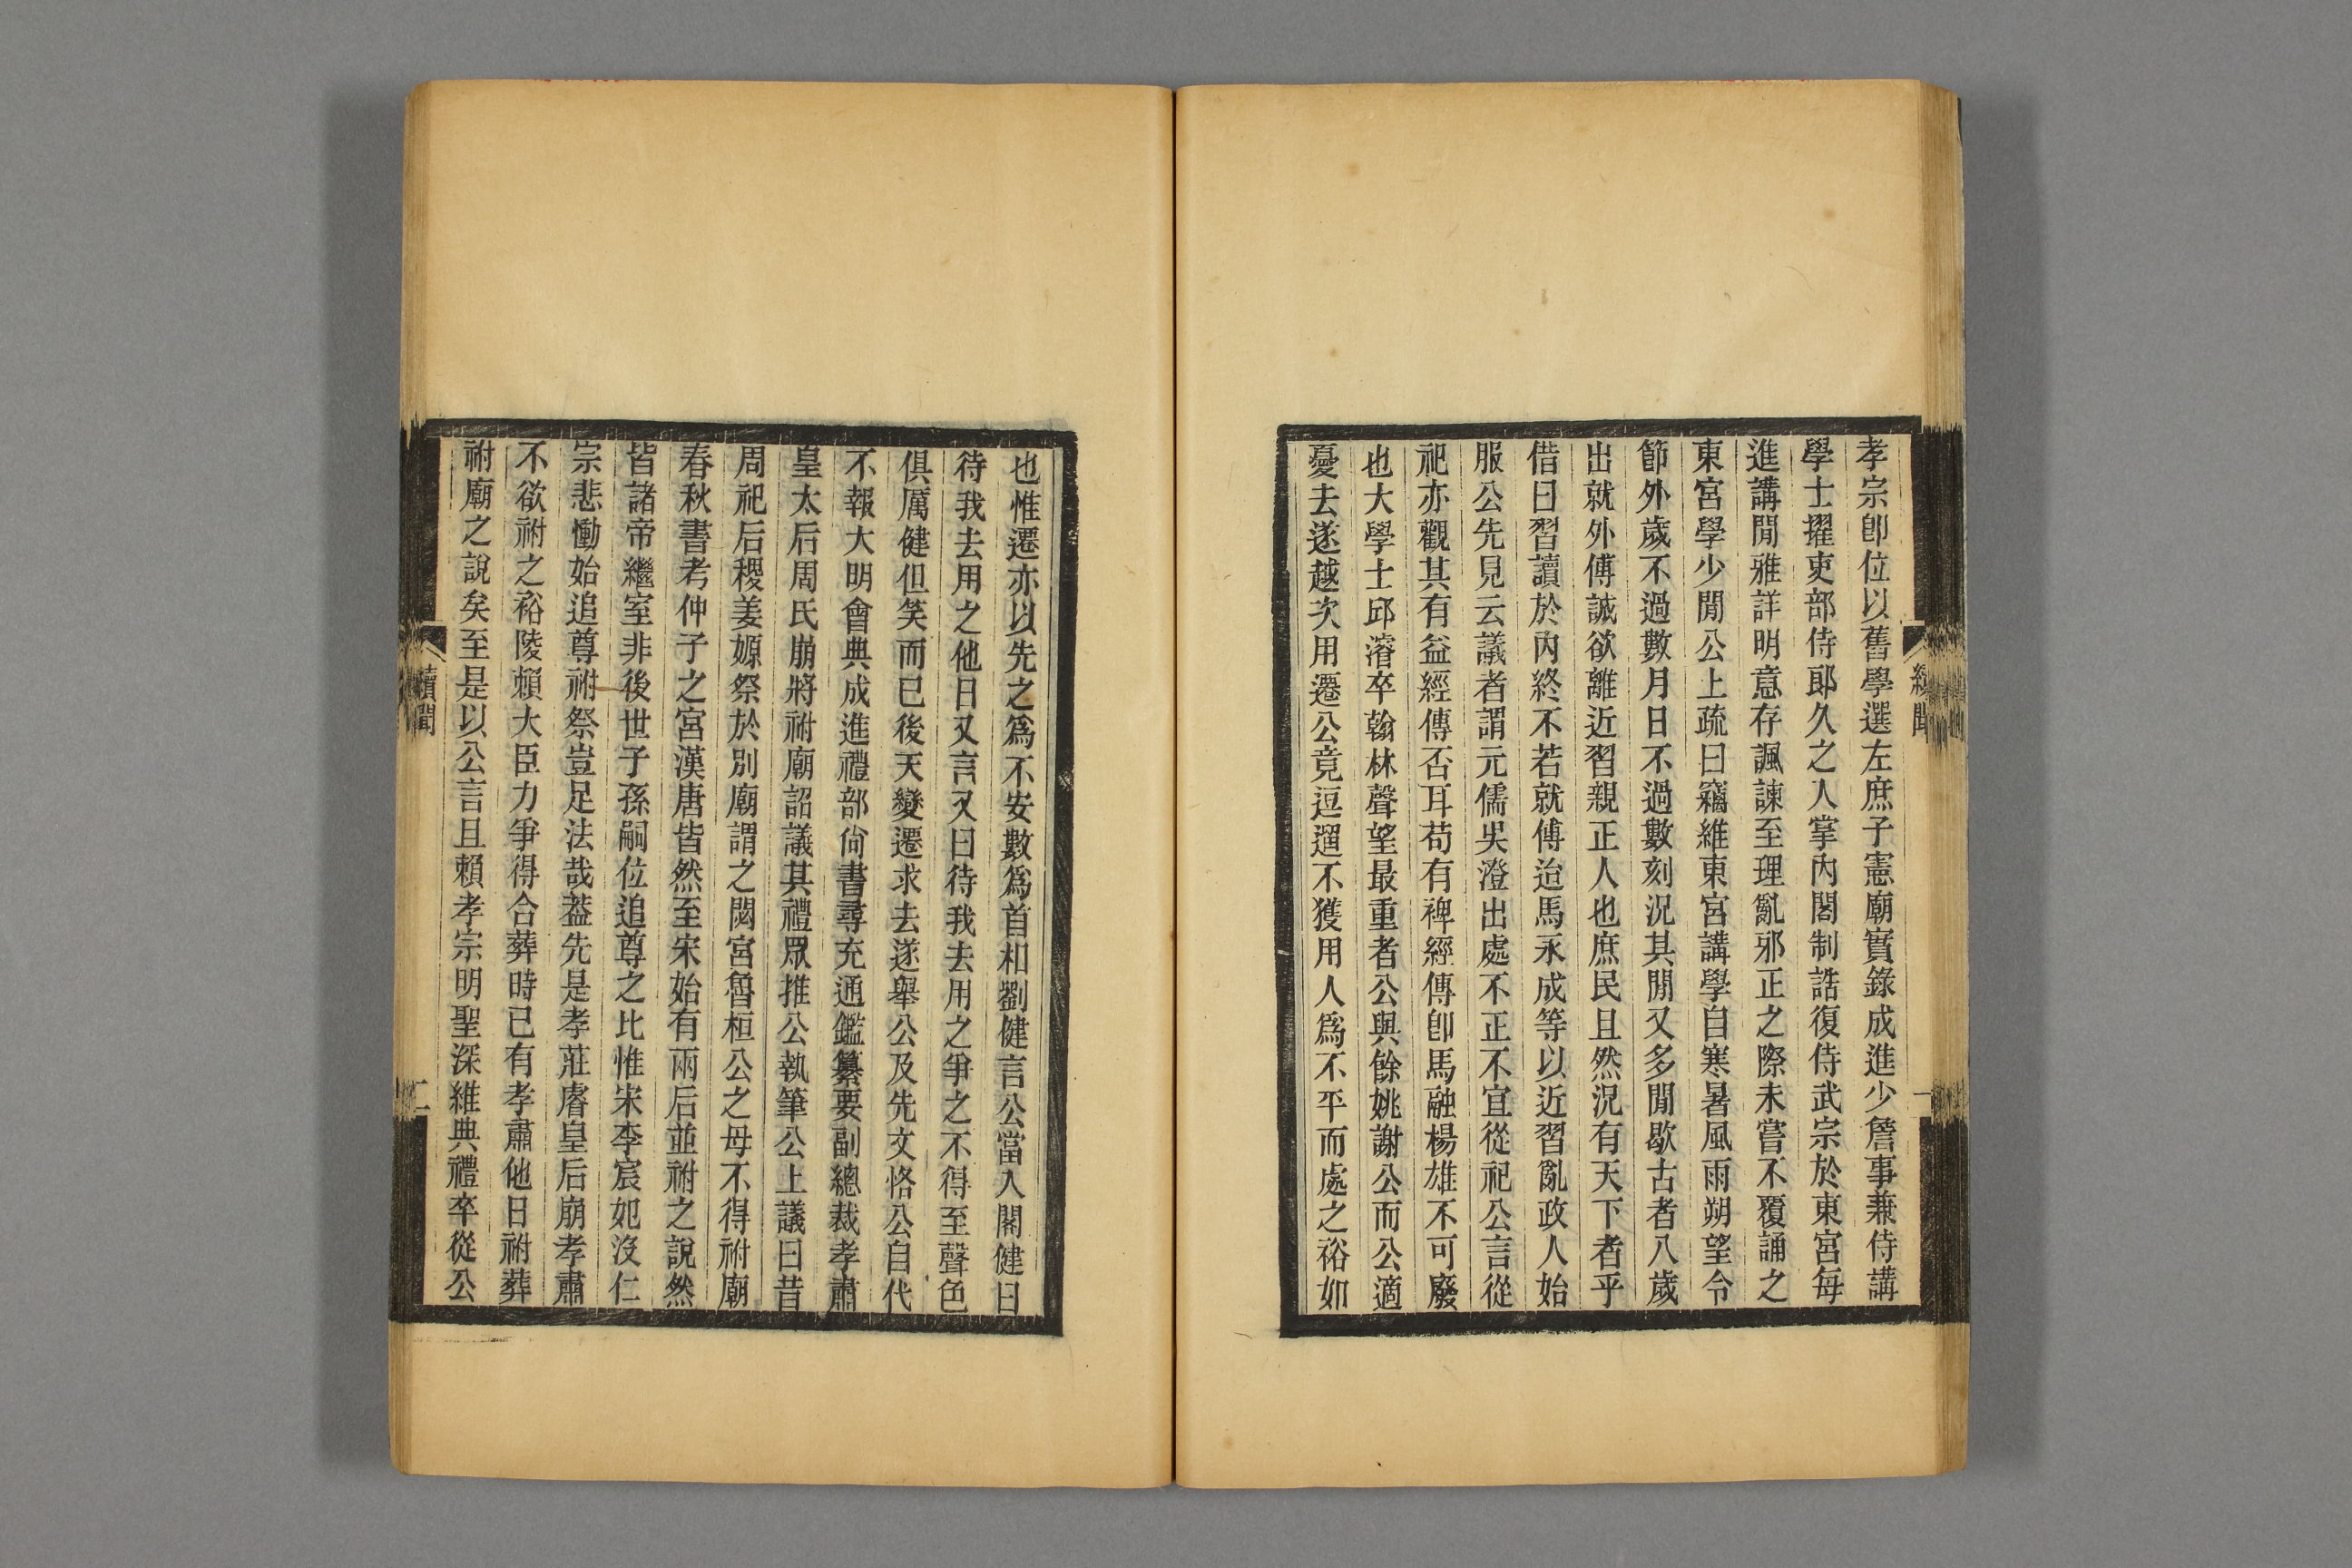 續聞
一
孝宗卽位以舊學選左庶子憲廟實錄成進少詹事兼侍講
學士擢吏部侍郞久之入掌內閣制誥復侍武宗於東宮每
進講閒雅詳明意存諷諫至理亂邪正之際未嘗不覆誦之
東宮學少閒公上疏曰竊維東宮講學自寒暑風雨朔望令
節外歲不過數月日不過數刻況其閒又多閒歇古者八歲
出就外傅誠欲離近習親正人也庶民且然況有天下者乎
借曰習讀於內終不若就傅迨馬永成等以近習亂政人始
服公先見云議者謂元儒吳澄出處不正不宜從祀公言從
祀亦觀其有益經傳否耳苟有裨經傳卽馬融楊雄不可廢
也大學士邱濬卒翰林聲望最重者公與餘姚謝公而公適
憂去遂越次用遷公竟逗遛不獲用人爲不平而處之裕如
也惟遷亦以先之爲不安數爲首相劉健言公當入閣健曰
待我去用之他日又言又曰待我去用之爭之不得至聲色
俱厲健但笑而已後天變遷求去遂舉公及先文恪公自代
不報大明會典成進禮部尙書尋充通鑑纂要副總裁孝肅
皇太后周氏崩將祔廟詔議其禮眾推公執筆公上議曰昔
周祀后稷姜嫄祭於別廟謂之閟宮魯桓公之母不得祔廟
春秋書考仲子之宮漢唐皆然至宋始有兩后並祔之說然
皆諸帝繼室非後世子孫嗣位追尊之比惟宋李宸妃沒仁
宗悲慟始追尊祔祭豈足法哉葢先是孝莊睿皇后崩孝肅
不欲祔之裕陵賴大臣力爭得合葬時已有孝肅他日祔葬
祔廟之說矣至是以公言且賴孝宗明聖深維典禮卒從公
續聞
二